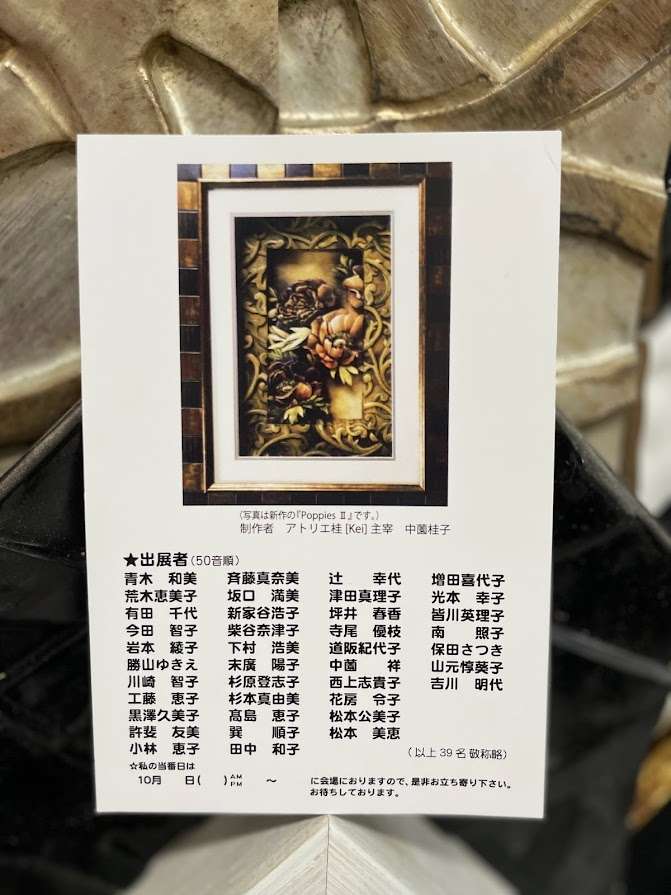 (写真は新作の『Poppies Ⅱ』です。)
制作者 アトリエ桂[Kei]主宰 中薗桂子
★出展者(50音順)
青木 和美 斉藤真奈美 辻 幸代 増田喜代子
荒木恵美子 坂口 満美 津田真理子 光本 幸子
有田 千代 新家谷浩子 坪井 春香 皆川英理子
今田 智子 柴谷奈津子 寺尾 優枝 南 照子
岩本 綾子 下村 浩美 道阪紀代子 保田さつき
勝山ゆきえ 末廣 陽子 中薗 祥 山元惇葵子
川崎 智子 杉原登志子 西上志貴子 吉川 明代
工藤 恵子 杉本真由美 花房 令子
黒澤久美子 髙島 恵子 松本公美子
許斐 友美 巽 順子 松本 美恵
小林 恵子 田中 和子 (以上39名敬称略)
☆私の当番日は
10月 日( ) AM PM ~ に会場におりますので、是非お立ち寄り下さい。
お待ちしております。